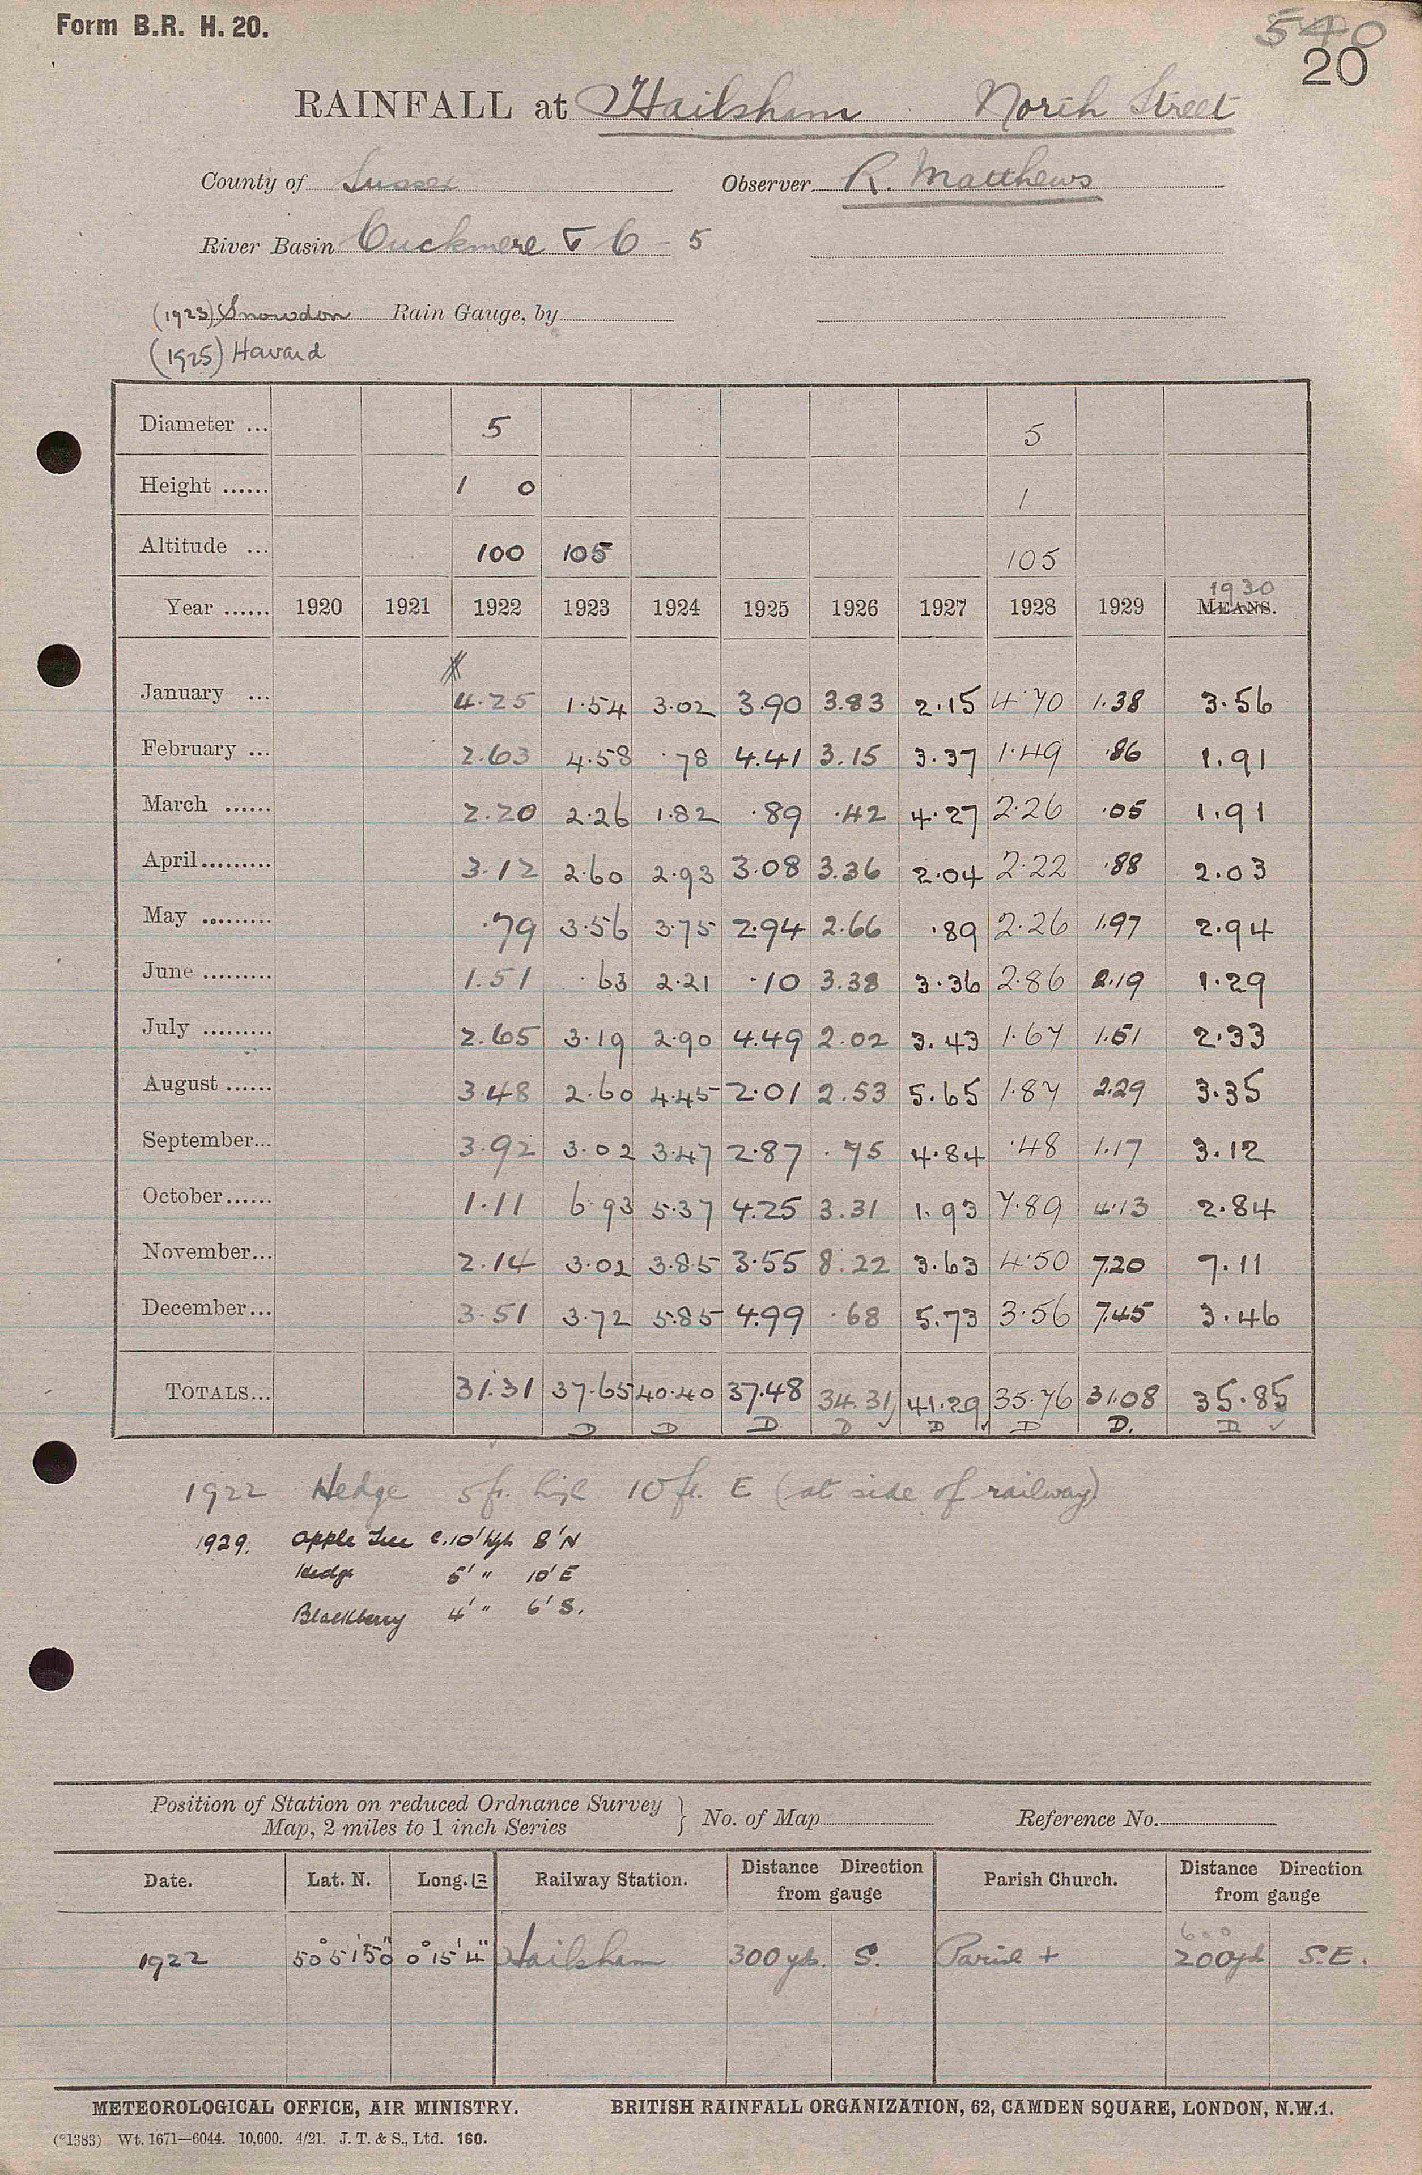 Form B.R. H. 20.
540
20
RAINFALL at Hailsham North Street
County of Sussex Observer R. Matthews
River Basin Cuckmere & C - 5
(1923) Snowdon Rain Gauge, by
(1925) Havard
Diameter ... 5 5
Height ...... 1 0 1
Altitude ... 100 105 105
1930
Year ...... 1920 1921 1922 1923 1924 1925 1926 1927 1928 1929 MEANS.
January ... 4.25 1.54 3.02 3.90 3.83 2.15 4.70 1.38 3.56
February ... 2.63 4.58 .78 4.41 3.15 3.37 1.49 .86 1.91
March ...... 2.20 2.26 1.82 .89 .42 4.27 2.26 .05 1.91
April......... 3.12 2.60 2.93 3.08 3.36 2.04 2.22 .88 2.03
May ......... .79 3.56 3.75 2.94 2.66 .89 2.26 1.97 2.94
June ......... 1.51 .63 2.21 .10 3.38 3.36 2.86 2.19 1.29
July ......... 2.65 3.19 2.90 4.49 2.02 3.43 1.67 1.51 2.33
August ...... 3.48 2.60 4.45 2.01 2.53 5.65 1.87 2.29 3.35
September... 3.92 3.02 3.47 2.87 .75 4.84 .48 1.17 3.12
October...... 1.11 6.93 5.37 4.25 3.31 1.93 7.89 4.13 2.84
November... 2.14 3.02 3.85 3.55 8.22 3.63 4.50 7.20 7.11
December... 3.51 3.72 5.85 4.99 .68 5.73 3.56 7.45 3.46
TOTALS... 31.31 37.65 40.40 37.48 34.31 41.29 35.76 31.08 35.85
D D D D D D D. D
1922 Hedge 5 ft. high 10 ft. E (at side of railway)
1929. Apple Tree c.10' high 8' N
Hedge 5' " 10' E
Blackberry 4' " 6' S.
Position of Station on reduced Ordnance Survey Map, 2 miles to 1 inch Series } No. of Map Reference No.
Date. Lat. N. Long. E Railway Station. Distance Direction from gauge Parish Church. Distance Direction from gauge
600
1922 50° 51' 50" 0° 15' 4" Hailsham 300 yds. S. Parish + 200 yds S.E.
METEOROLOGICAL OFFICE, AIR MINISTRY. BRITISH RAINFALL ORGANIZATION, 62, CAMDEN SQUARE, LONDON, N.W.1.
(*1383) Wt. 1671—6044. 10,000. 4/21. J. T. & S., Ltd. 160.